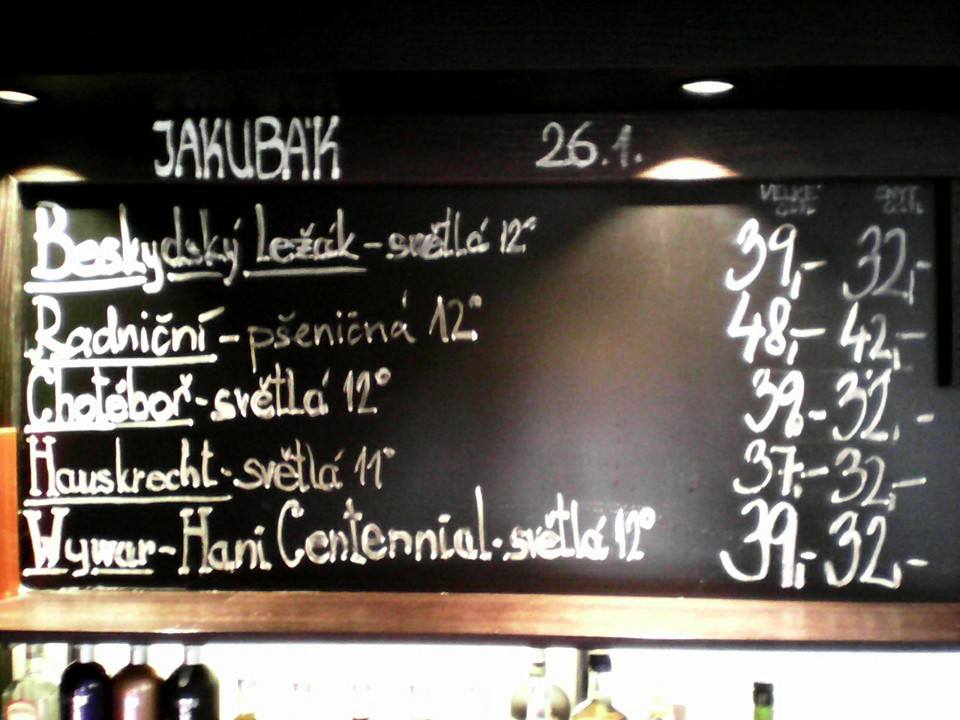 JAKUBÁK 26.1.
VELKÉ
Beskydský Ležák - světlá 12° 39,- 32,-
Radniční - pšeničná 12° 48,- 42,-
Chotěboř - světlá 12° 39,- 32,-
Hauskrecht - světlá 11° 37,- 32,-
Wywar - Hani Centennial - světlá 12° 39,- 32,-